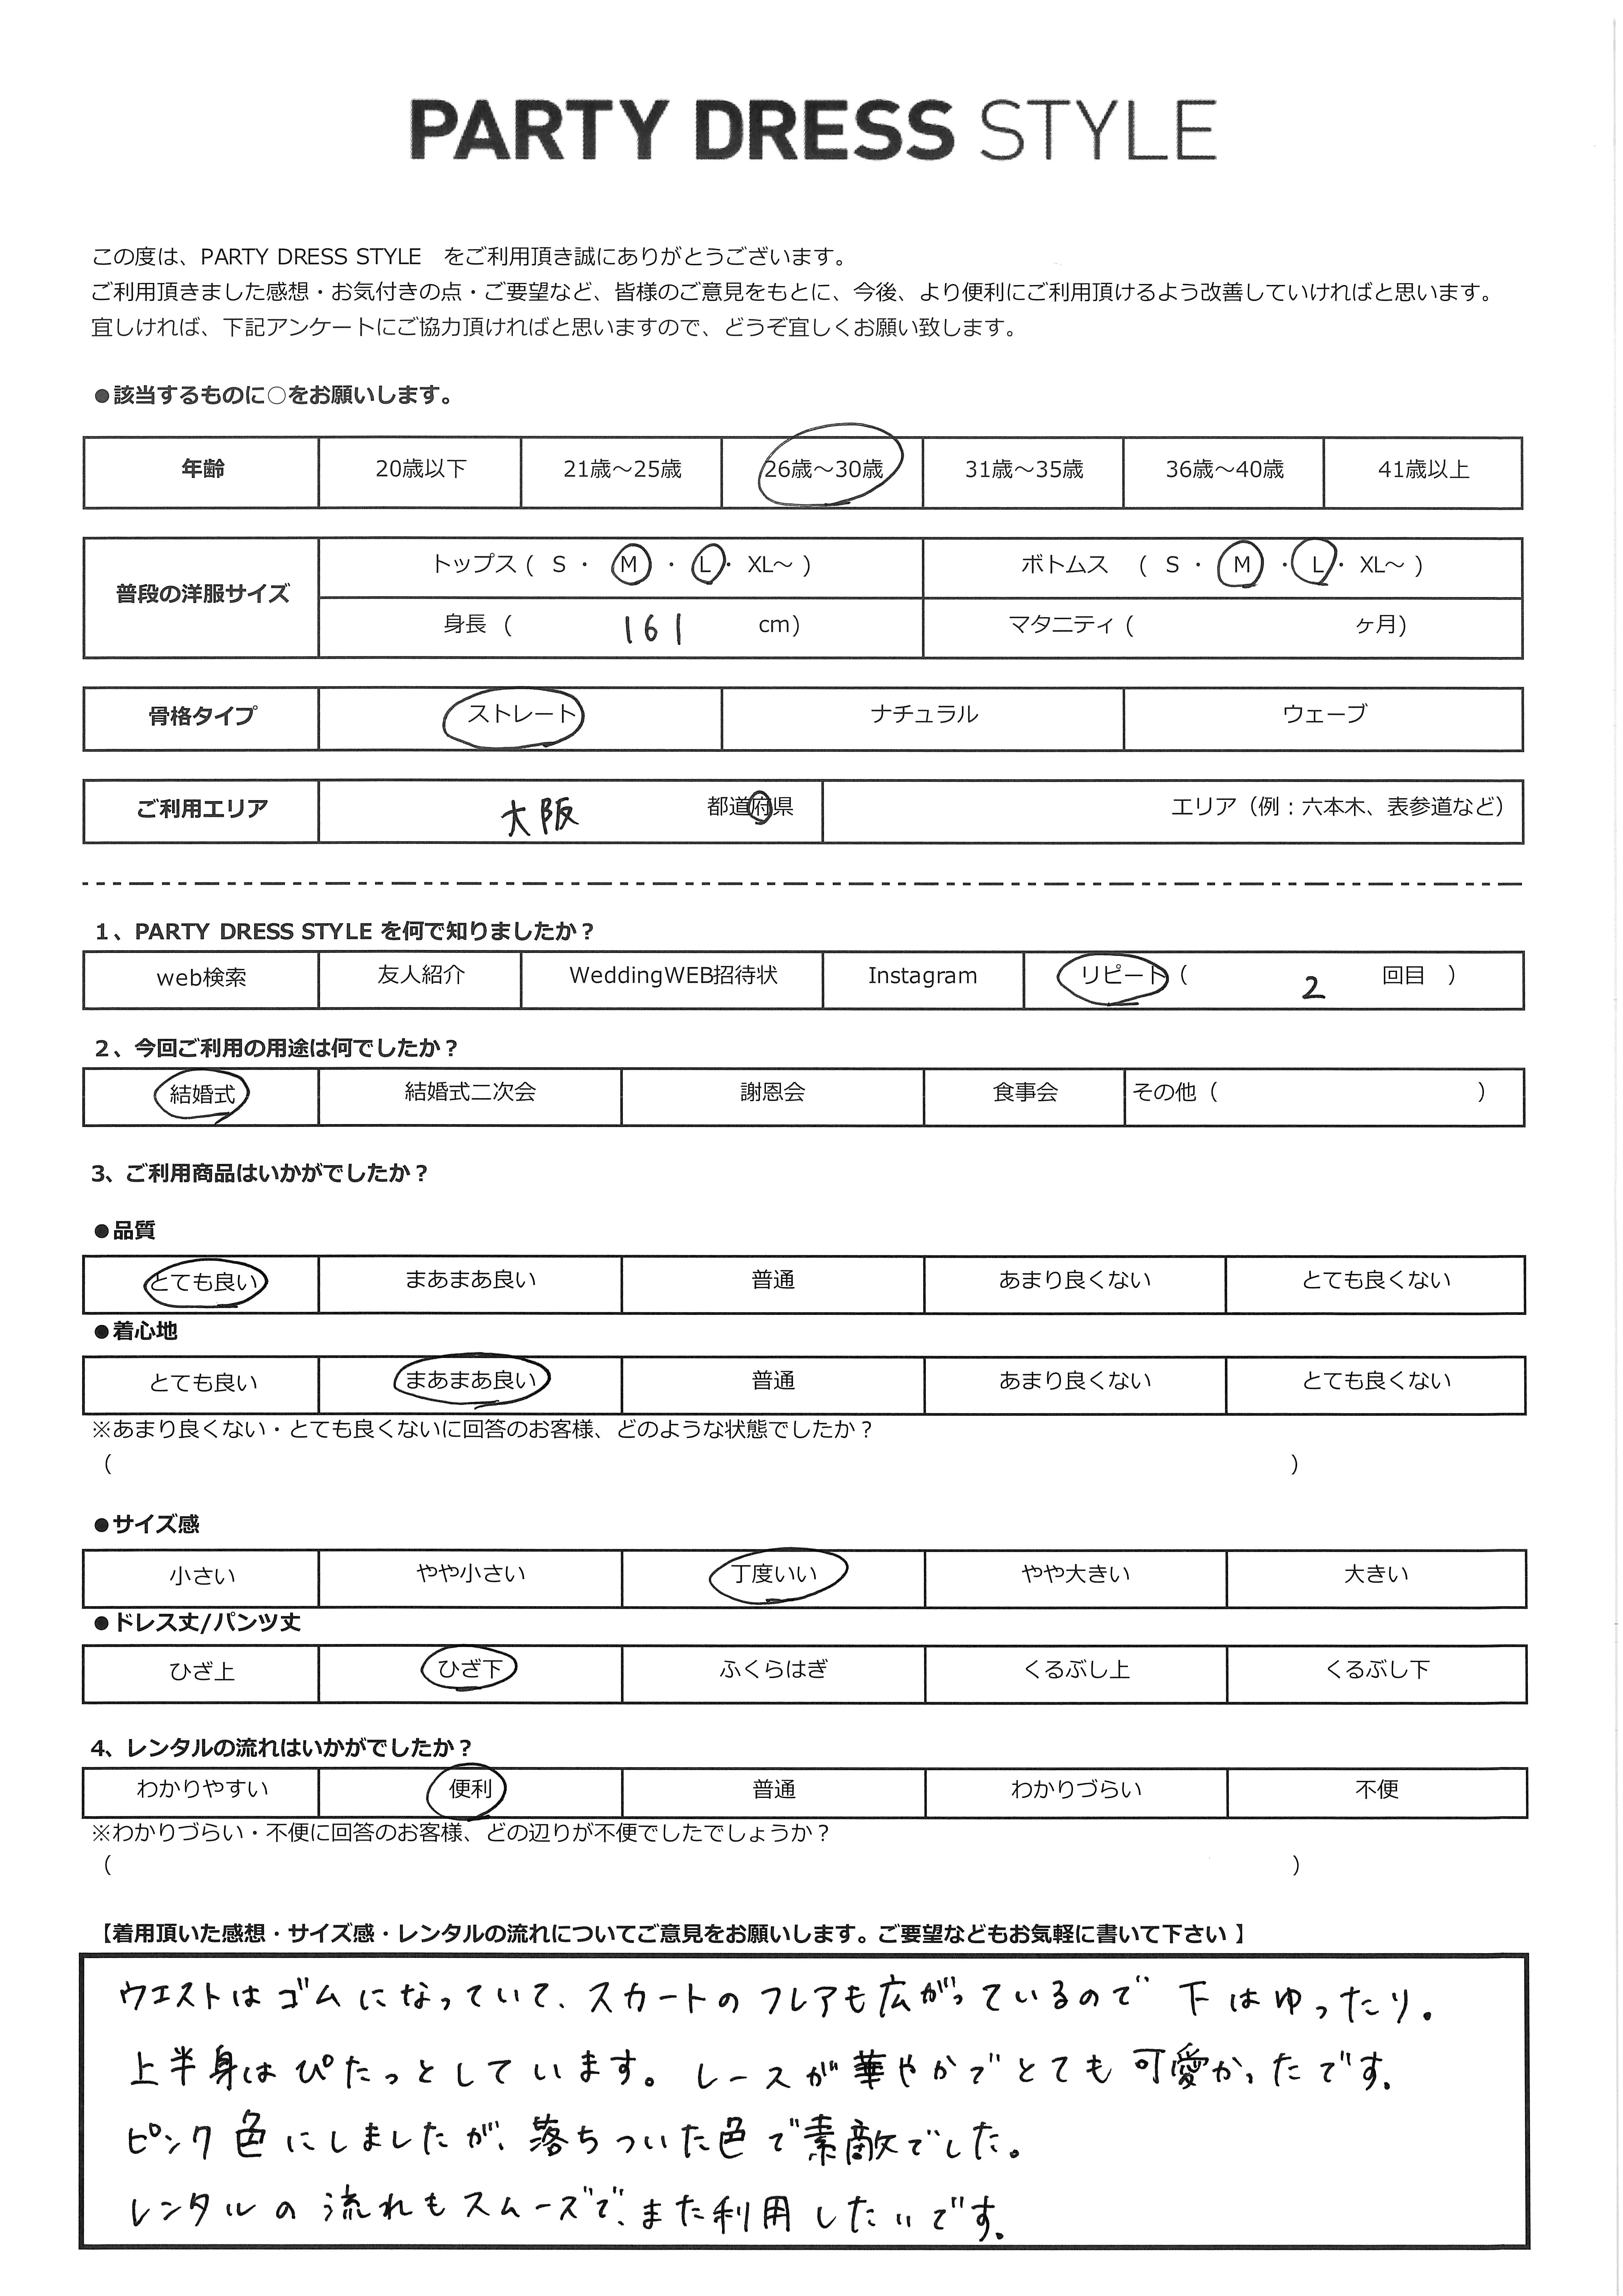 PARTY DRESS STYLE
この度は、PARTY DRESS STYLE　をご利用頂き誠にありがとうございます。
ご利用頂きました感想・お気付きの点・ご要望など、皆様のご意見をもとに、今後、より便利にご利用頂けるよう改善していければと思います。
宜しければ、下記アンケートにご協力頂ければと思いますので、どうぞ宜しくお願い致します。
●該当するものに○をお願いします。
年齢 20歳以下 21歳～25歳 26歳～30歳 31歳～35歳 36歳～40歳 41歳以上
普段の洋服サイズ トップス ( S ・ M ・ L ・ XL～ ) ボトムス ( S ・ M ・ L ・ XL～ )
身長 ( 161 cm) マタニティ ( ヶ月)
骨格タイプ ストレート ナチュラル ウェーブ
ご利用エリア 大阪 都道府県 エリア（例：六本木、表参道など）
1、PARTY DRESS STYLE を何で知りましたか？
web検索 友人紹介 WeddingWEB招待状 Instagram リピート ( 2 回目 )
2、今回ご利用の用途は何でしたか？
結婚式 結婚式二次会 謝恩会 食事会 その他 ( )
3、ご利用商品はいかがでしたか？
●品質
とても良い まあまあ良い 普通 あまり良くない とても良くない
●着心地
とても良い まあまあ良い 普通 あまり良くない とても良くない
※あまり良くない・とても良くないに回答のお客様、どのような状態でしたか？
( )
●サイズ感
小さい やや小さい 丁度いい やや大きい 大きい
●ドレス丈/パンツ丈
ひざ上 ひざ下 ふくらはぎ くるぶし上 くるぶし下
4、レンタルの流れはいかがでしたか？
わかりやすい 便利 普通 わかりづらい 不便
※わかりづらい・不便に回答のお客様、どの辺りが不便でしたでしょうか？
( )
【着用頂いた感想・サイズ感・レンタルの流れについてご意見をお願いします。ご要望などもお気軽に書いて下さい 】
ウエストはゴムになっていて、スカートのフレアも広がっているので下はゆったり。
上半身はぴたっとしています。レースが華やかでとても可愛かったです。
ピンク色にしましたが、落ちついた色で素敵でした。
レンタルの流れもスムーズで、また利用したいです。